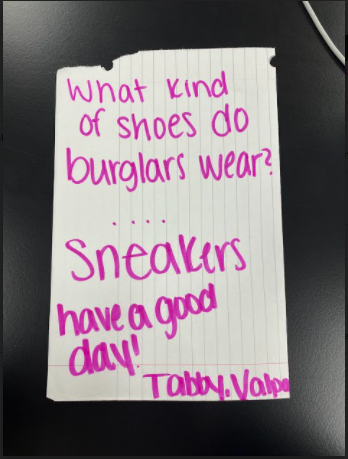 What kind
of shoes do
burglars wear?
....
Sneakers
have a good
day!
Tabby.Valpo